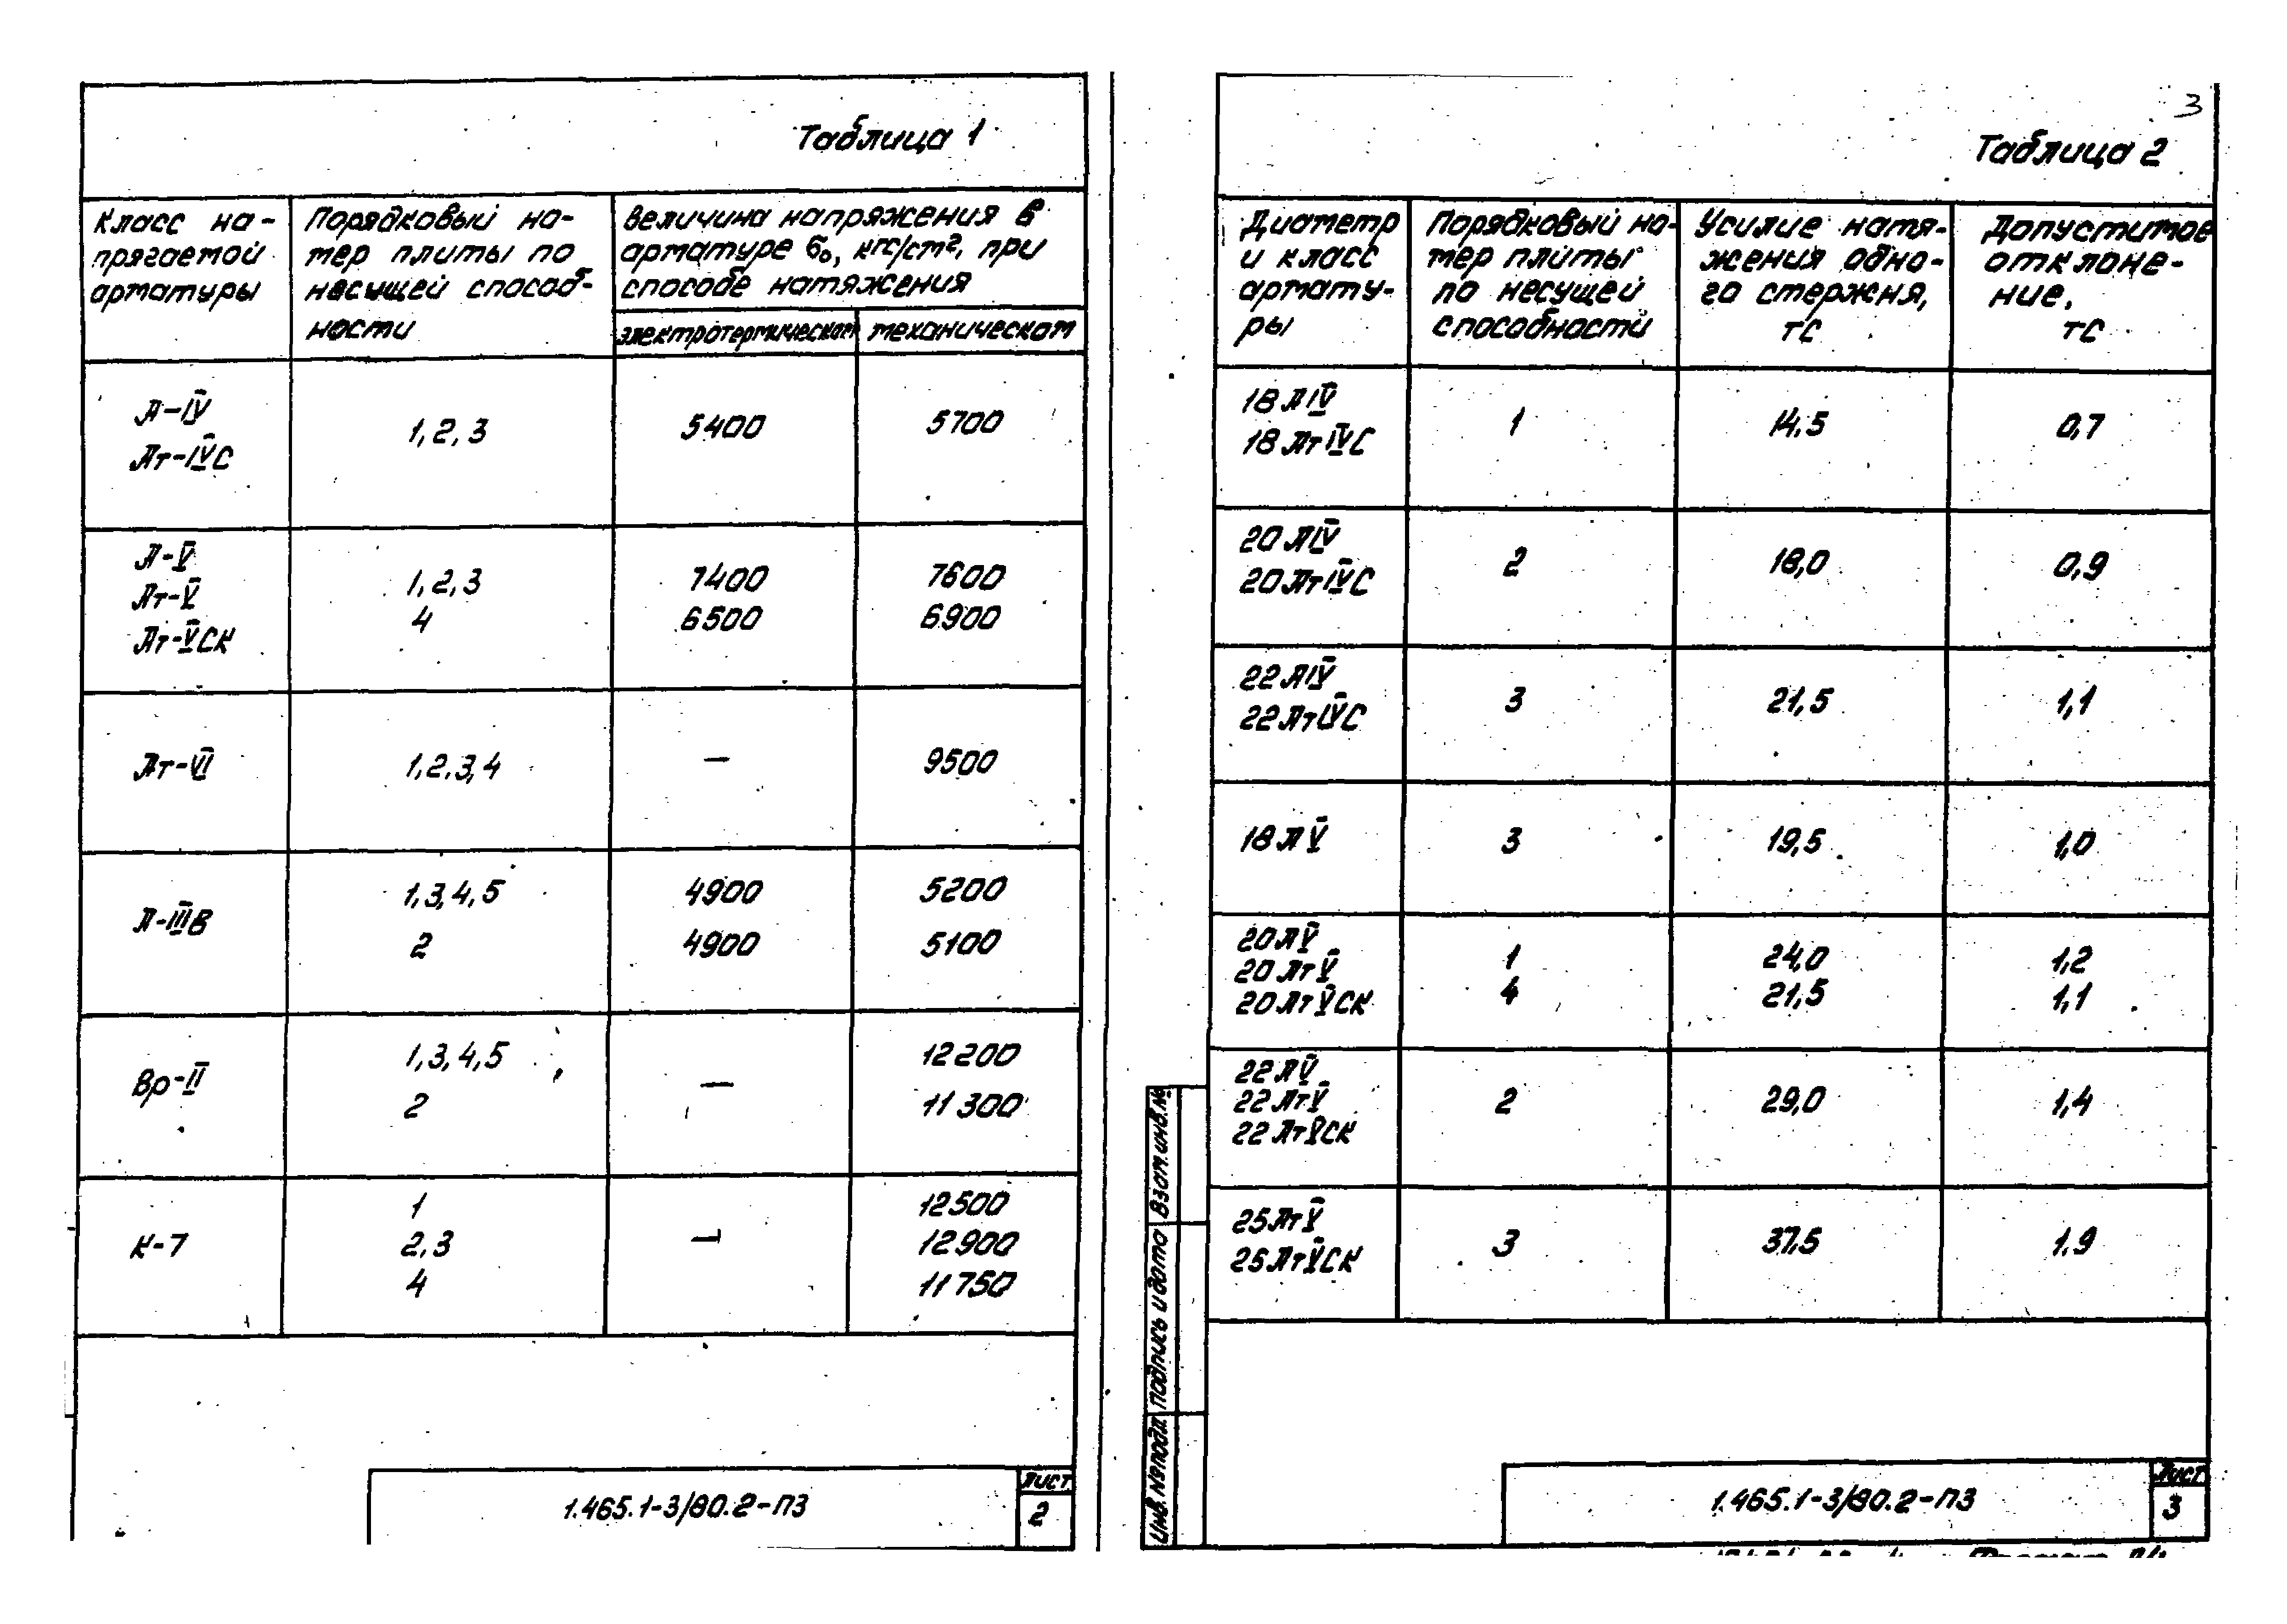 Таблица 1
Класс на-
прягаемой
арматуры
Порядковый но-
мер плиты по
несущей способ-
ности
Величина напряжения в
арматуре б₀, кгс/см², при
способе натяжения
электротермическом
механическом
А-IV
Ат-IVС
1, 2, 3
5400
5700
А-V
Ат-V
Ат-VСК
1, 2, 3
4
7400
6500
7600
6900
Ат-VI
1, 2, 3, 4
—
9500
А-IIIВ
1, 3, 4, 5
2
4900
4900
5200
5100
Вр-II
1, 3, 4, 5
2
—
12200
11300
К-7
1
2,3
4
—
12500
12900
11750
1.465.1-3/80.2-ПЗ
Лист
2
3
Таблица 2
Диаметр
и класс
армату-
ры
Порядковый но-
мер плиты
по несущей
способности
Усилие натя-
жения одно-
го стержня,
тс
Допустимое
отклоне-
ние,
тс
18 АIV
18 АтIVС
1
14,5
0,7
20 АIV
20 АтIVС
2
18,0
0,9
22 АIV
22 АтIVС
3
21,5
1,1
18 АV
3
19,5
1,0
20 АV
20 АтV
20 АтVСК
1
4
24,0
21,5
1,2
1,1
22 АV
22 АтV
22 АтVСК
2
29,0
1,4
25 АтV
25 АтVСК
3
37,5
1.9
Инв. № подл.
Подпись и дата
Взам. инв. №
1.465.1-3/80.2-ПЗ
Лист
3